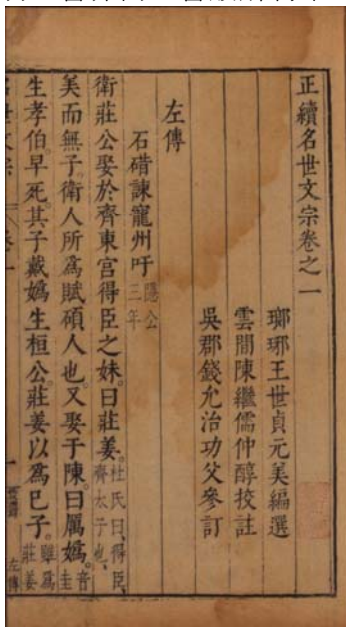 正續名世文宗卷之一
瑯琊王世貞元美編選
雲間陳繼儒仲醇校註
吳郡錢允治功父參訂
左傳
石碏諫寵州吁 隱公三年
衛莊公娶於齊東宮得臣之妹。曰莊姜。杜氏曰、得臣、齊太子也、
美而無子。衛人所為賦碩人也。又娶于陳。曰厲媯。音圭
生孝伯。早死。其子戴媯生桓公。莊姜以為己子。雖為莊姜
左傳